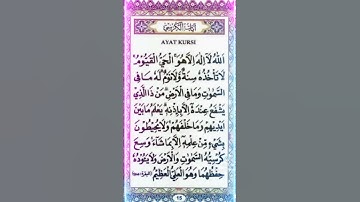 آية الكرسي
AYAT KURSI
اَللّٰهُ لَآ اِلٰهَ اِلَّا هُوَ ۚ اَلْحَيُّ الْقَيُّوْمُ
لَا تَأْخُذُهٗ سِنَةٌ وَّلَا نَوْمٌ لَهٗ مَا فِى
السَّمٰوٰتِ وَمَا فِى الْاَرْضِ مَنْ ذَا الَّذِيْ
يَشْفَعُ عِنْدَهٗٓ اِلَّا بِاِذْنِهٖ يَعْلَمُ مَا بَيْنَ
اَيْدِيْهِمْ وَمَا خَلْفَهُمْ وَلَا يُحِيْطُوْنَ
بِشَيْءٍ مِّنْ عِلْمِهٖٓ اِلَّا بِمَا شَآءَ وَسِعَ
كُرْسِيُّهُ السَّمٰوٰتِ وَالْاَرْضَ وَلَا يَـُٔوْدُهٗ
حِفْظُهُمَا وَهُوَ الْعَلِيُّ الْعَظِيْمُ
15